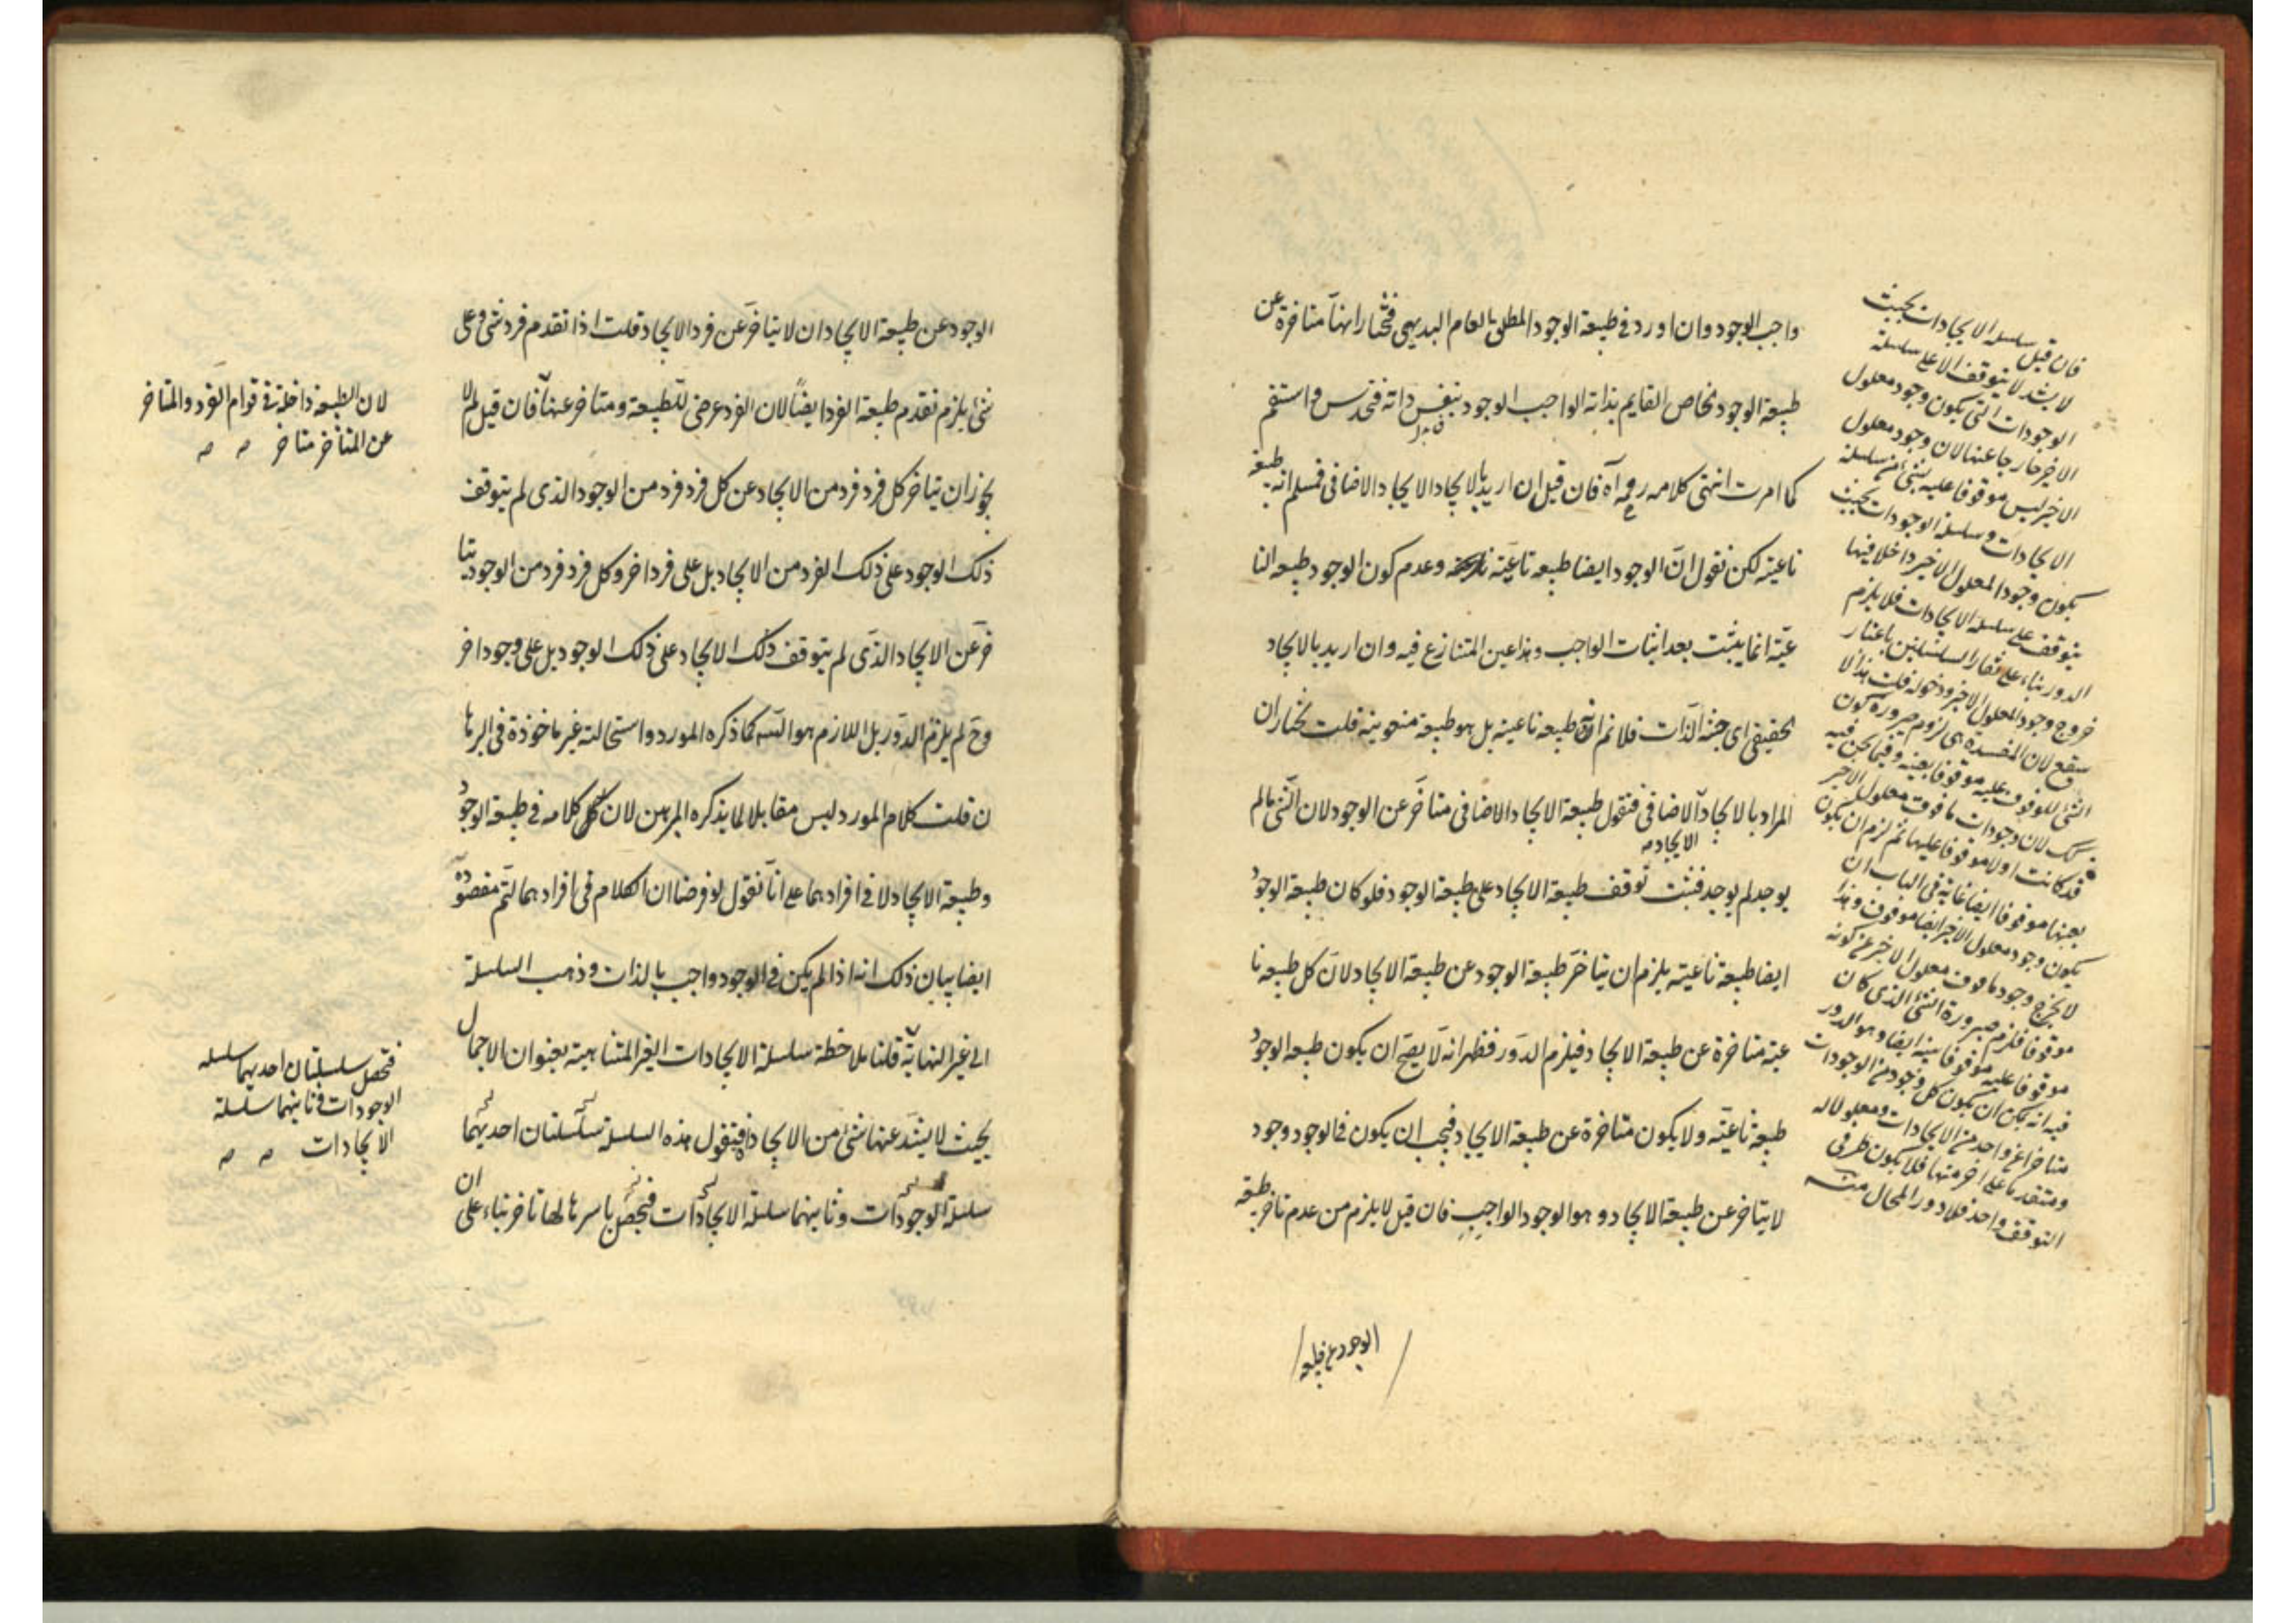 واجب الوجود وان اورد في طبيعة الوجود المطلق العام البديهي فنختار انها متاخرة عن
طبيعة الوجود الخاص القايم بذاته الواجب الوجود بنفس ذاته فتحدس واستقم
كما امرت انتهى كلامه فان قيل ان اريد بالايجاد الايجاد الاضافي فنسلم انه طبيعة
ناعتية لكن نقول ان الوجود ايضا طبيعه ناعتية وعدم كون الوجود طبيعه النا
عتية انما يثبت بعد اثبات الواجب وهذا عين المتنازع فيه وان اريد بالايجاد
الحقيقي اي جنة الذات فلا نم انه طبيعه ناعتية بل هو طبيعة منعوتية قلت نختار ان
المراد بالايجاد الاضافي فنقول طبيعة الايجاد الاضافي متاخر عن الوجود لان الشئ ما لم
الايجاد
يوجد لم يوجد فثبت توقف طبيعة الايجاد على طبيعة الوجود فلو كان طبيعة الوجود
ايضا طبيعة ناعتية يلزم ان يتاخر طبيعة الوجود عن طبيعة الايجاد لان كل طبيعه نا
عتية متاخرة عن طبيعة الايجاد فيلزم الدور فظهر انه لا يصح ان يكون طبيعه الوجود
طبيعة ناعتية ولا يكون متاخرة عن طبيعة الايجاد فيجب ان يكون في الوجود وجود
لا يتاخر عن طبيعة الايجاد وهو الوجود الواجب فان قيل لا يلزم من عدم تاخر طبيعة
الوجود عن طبيعة
فان قيل سلسله الايجادات بحيث
لا يشذ لا يتوقف الا على سلسلة
الوجودات التي يكون وجود معلول
الاخير خارجا عنها لان وجود معلول
الاخير ليس موقوفا عليه بشئ من سلسلة
الايجادات وسلسلة الوجودات بحيث
يكون وجود المعلول الاخير داخلا فيها
يتوقف على سلسله الايجادات فلا يلزم
الدور بناء على تغاير السلسلتين باعتبار
خروج وجود المعلول الاخير ودخوله قلت هذا لا
ينفع لان المفسدة هي لزوم صيرورة كون
الشئ الموقوف عليه موقوفا بعينه وفيما نحن فيه
كذلك لان وجودات ما فوق معلول الاخير
قد كانت اولا موقوفا عليها ثم لزم ان يكون
بعينها موقوفا ايضا غاية في الباب ان
يكون وجود معلول الاخير ايضا موقوف وهذا
لا يخرج وجود ما فوق معلول الاخير عن كونه
موقوفا فلزم صيرورة الشئ الذي كان
موقوفا عليه موقوفا بعينه ايضا وهو الدور
فيه انه يمكن ان يكون كل وجود من الوجودات
متاخرا عن واحد من الايجادات ومعلولا له
ومتقدما على اخر منها فلا يكون طرفي
التوقف واحد فلا دور المحال منه
الوجود عن طبيعة الايجاد ان لا يتاخر عن فرد الايجاد قلت اذا تقدم فرد شئ على
شئ يلزم تقدم طبيعة الفرد ايضا لان الفرد عرضي للطبيعة ومتاخر عنها فان قيل لم لا
يجوز ان يتاخر كل فرد فرد من الايجاد عن كل فرد فرد من الوجود الذي لم يتوقف
ذلك الوجود على ذلك الفرد من الايجاد بل على فرد اخر وكل فرد فرد من الوجود يتا
خر عن الايجاد الذي لم يتوقف ذلك الايجاد على ذلك الوجود بل على وجود اخر
وح لم يلزم الدور بل اللازم هو التسه كما ذكره المورد واستحالته غير ماخوذة في البرها
ن قلت كلام المورد ليس مقابلا لما يذكره المبرهن لان كلامه في طبيعة الوجود
وطبيعة الايجاد لا في افرادهما على انا نقول لو فرضنا ان الكلام في افرادهما لتم مقصوده
ايضا بيان ذلك انه اذا لم يكن في الوجود واجب بالذات وذهب السلسلة
الى غير النهاية قلنا ملاحظة سلسلة الايجادات الغير المتناهية بعنوان الاجمال
بحيث لا يشذ عنها شئ من الايجاد فنقول هذه السلسلة سلسلتان احديهما
سلسلة الوجودات وثانيهما سلسلة الايجادات فتحصل باسرها لها تاخر بناء على ان
لان الطبيعة داخلة في قوام الفرد والمتاخر
عن المتاخر متاخر
فتحصل سلسلتان احديهما سلسله
الوجودات وثانيهما سلسلة
الايجادات